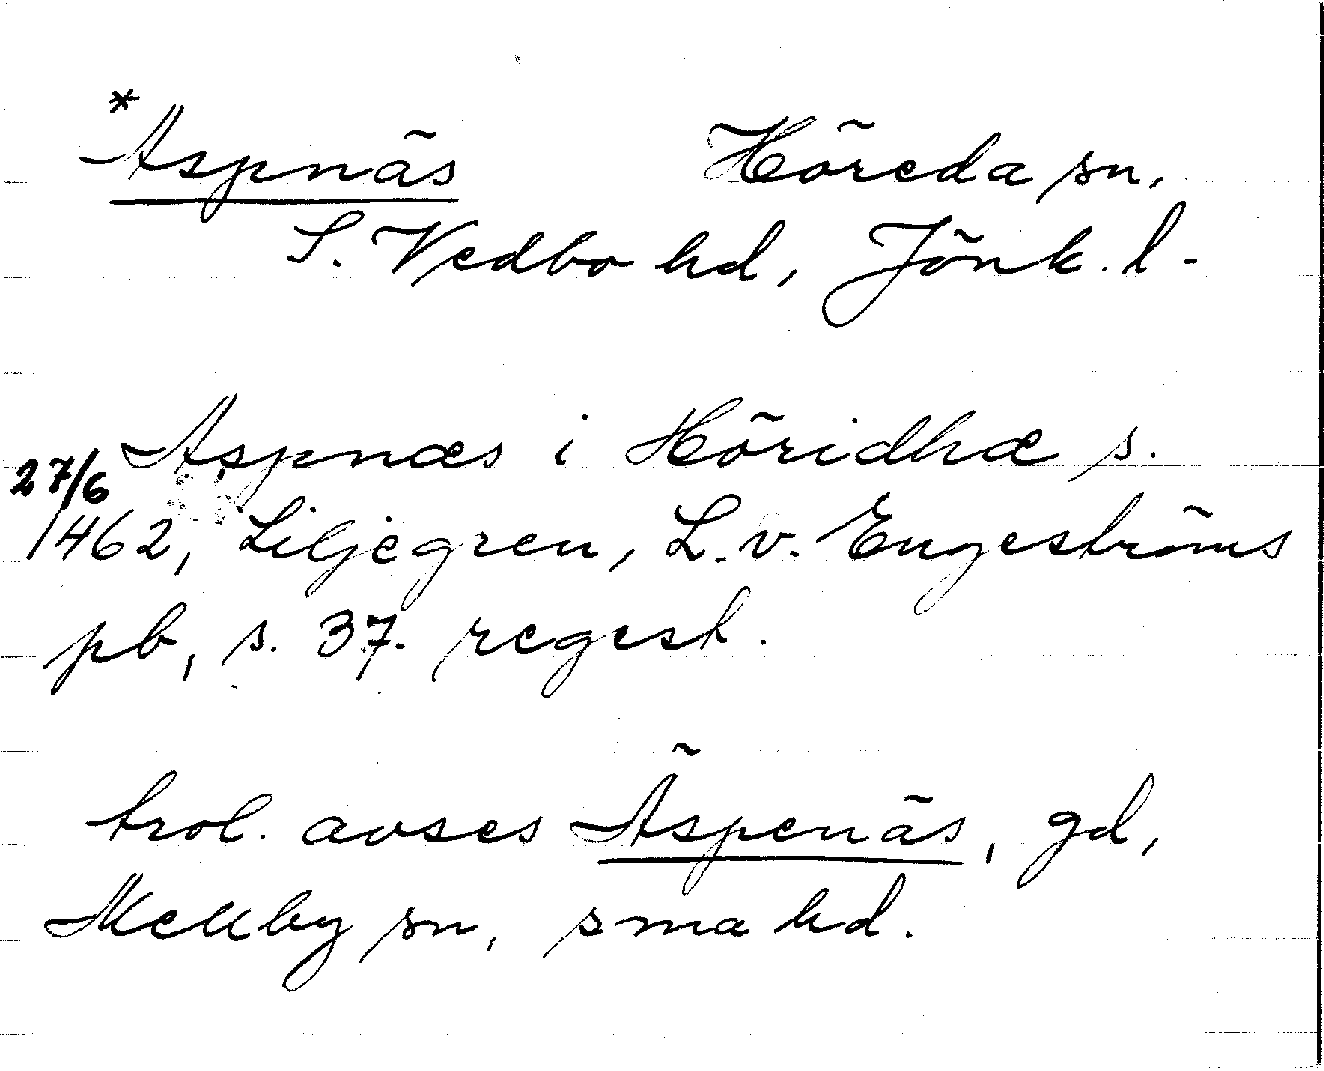 *Aspnäs Höreda sn,
S. Vedbo hd, Jönk. l.
Aspnæs i Höridhæ s.
27/6
1462, Liljegren, L. v. Engeströms
pb, s. 37. regest.
trol. avses Äspenäs, gd,
Mellby sn, sma hd.